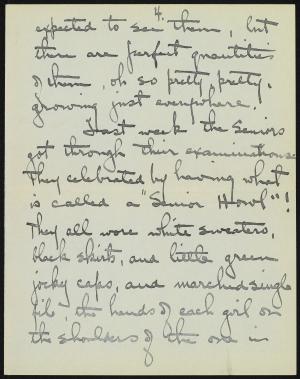 4.
expected to see them, but
there are perfect quantities
of them, oh so pretty, pretty,
growing just everywhere.
Last week the Seniors
got through their examinations
They celebrated by having what
is called a "Senior Howl"!
They all wore white sweaters,
black skirts, and little green
jocky caps, and marched single
file, the hands of each girl on
the shoulders of the one in